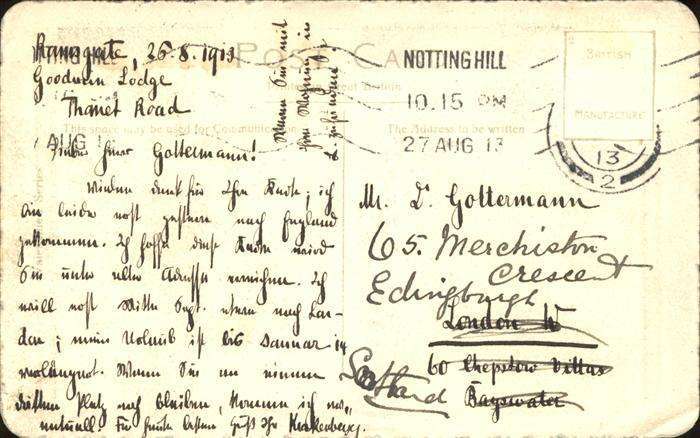 Ramsgate, 26.8.1913
Goodwin Lodge
Thanet Road
Lieber Herr Goltermann!
vielen Dank für Ihre Karte; ich
bin leider erst gestern nach England
gekommen. Ich hoffe diese Karte wird
Sie unter alter Adresse erreichen. Ich
will erst Mitte Sept. etwa nach Lon-
don; mein Urlaub ist bis Januar 14
verlängert. Wenn Sie an einem
dritten Platz noch bleiben, komme ich
eventuell. Für heute besten Gruß Ihr
Wenn Sie mit
POST CARD
The Address to be written
This space may be used for Communication
NOTTING HILL
10.15 PM
27 AUG 13
AUG
BRITISH
MANUFACTURE
13
2
Mr. D. Goltermann
65. Merchiston
Crescent
Edingburgh
London W
60 Chepstow Villas
Scotland
Bayswater